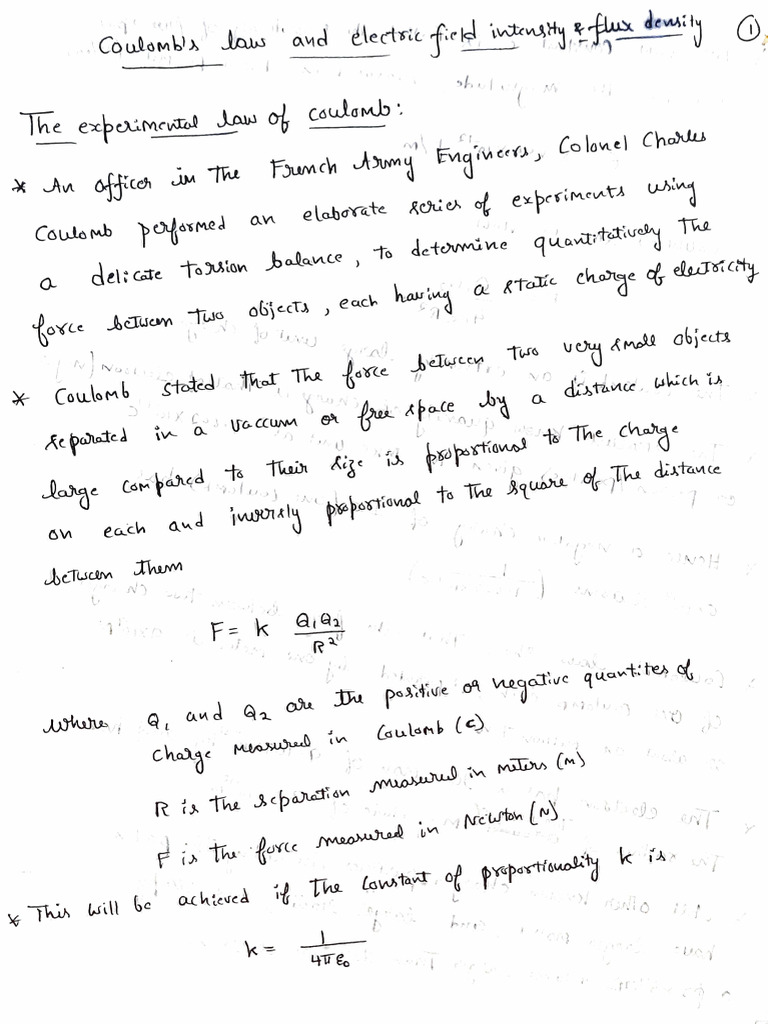 Coulomb's law and electric field intensity & flux density ①
The experimental law of coulomb:
* An officer in the French Army Engineers, Colonel Charles
Coulomb performed an elaborate series of experiments using
a delicate torsion balance, to determine quantitatively the
force between two objects, each having a static charge of electricity
* Coulomb stated that the force between two very small objects
separated in a vaccum or free space by a distance which is
large compared to their size is proportional to the charge
on each and inversly proportional to the square of the distance
between them
F = k Q₁Q₂ / R²
where, Q₁ and Q₂ are the positive or negative quantites of
charge measured in Coulomb (c)
R is the separation measured in meters (m)
F is the force measured in Newton (N)
* This will be achieved if the constant of proportionality k is
k = 1 / 4πε₀